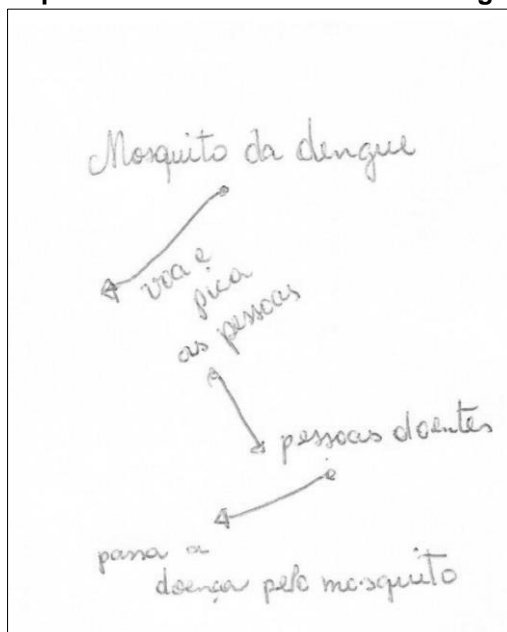 Mosquito da dengue
voa e
pica
as pessoas
pessoas doentes
passa a
doença pelo mosquito